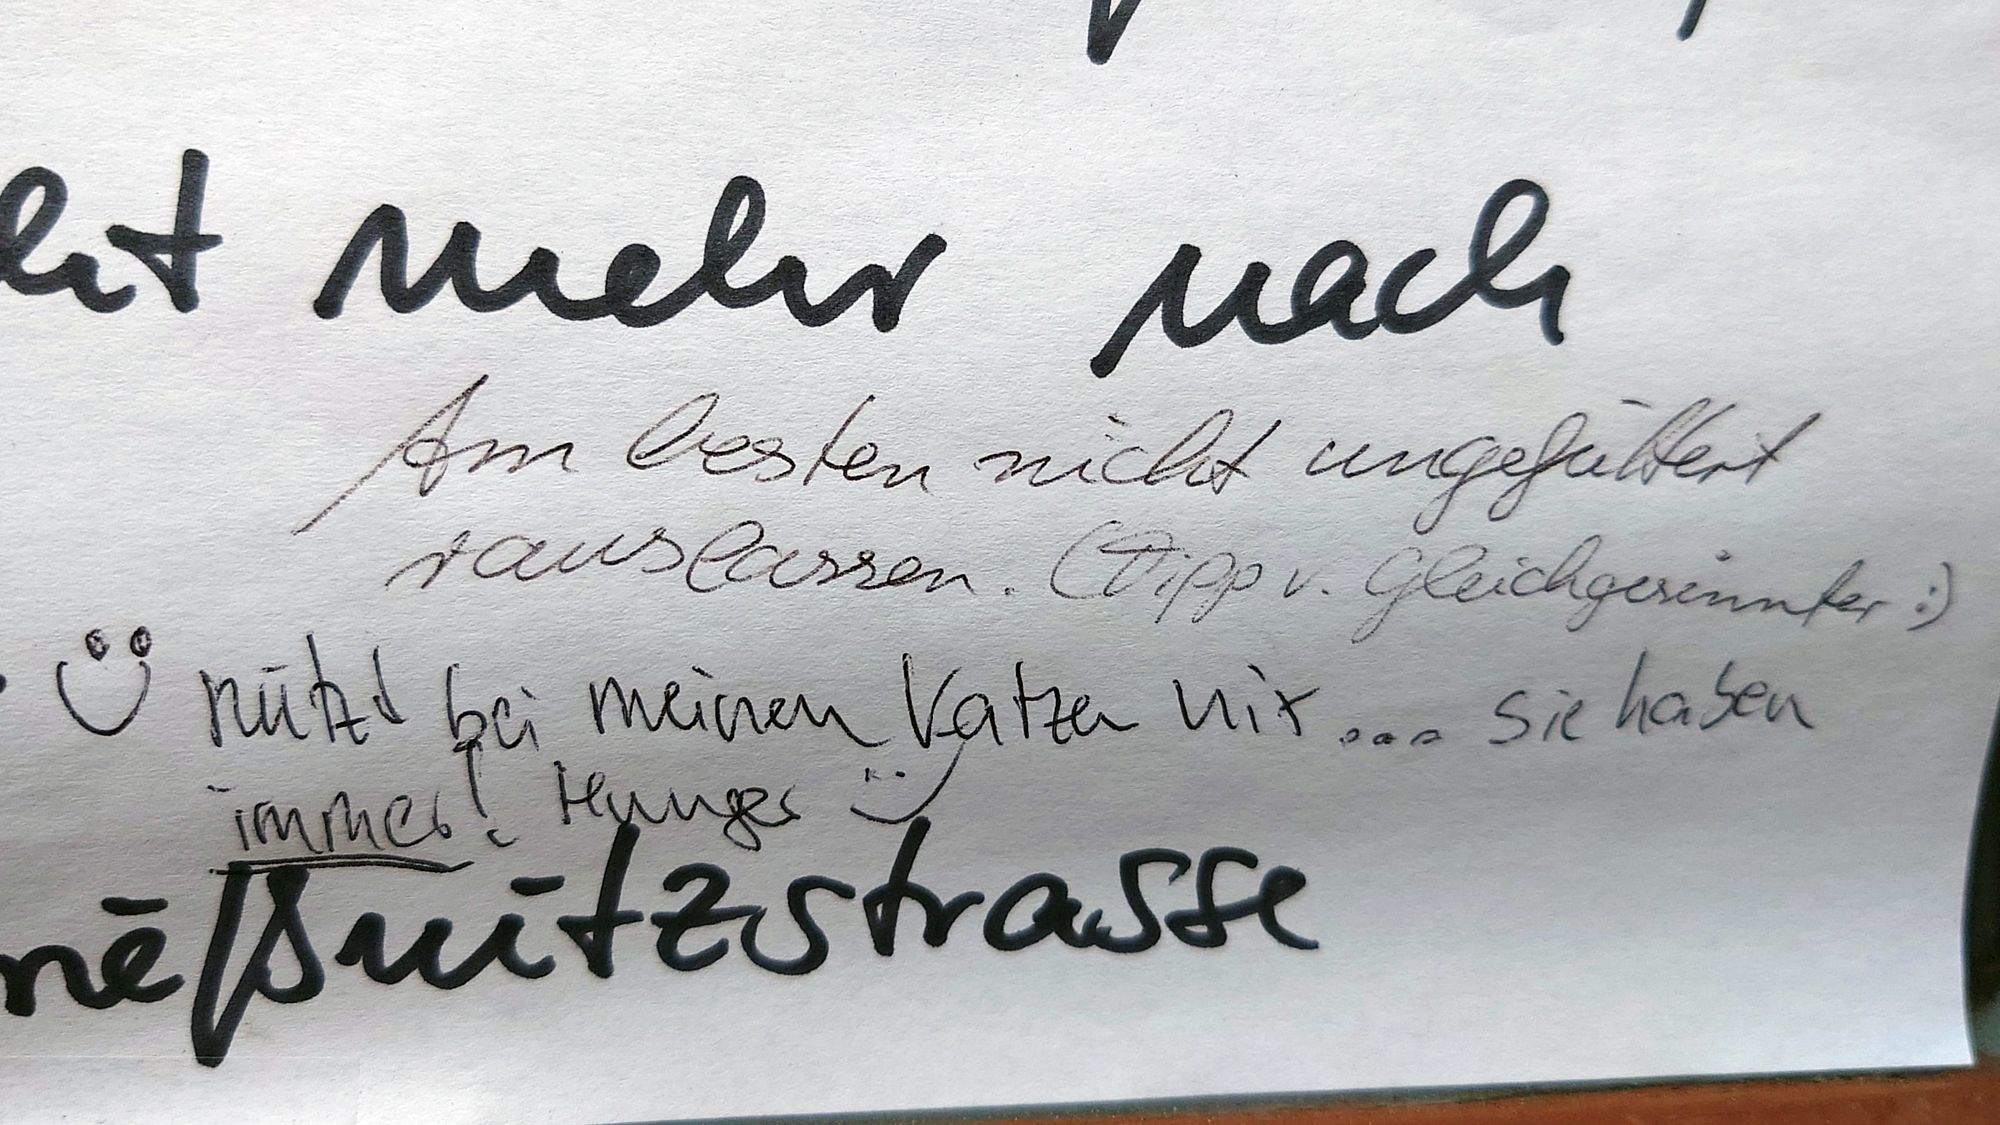 mehr nach
Am besten nicht ungefüttert
rauslassen. (Tipp v. Gleichgesinnter :)
nützt bei meinen Katzen nix... sie haben
immer! Hunger :)